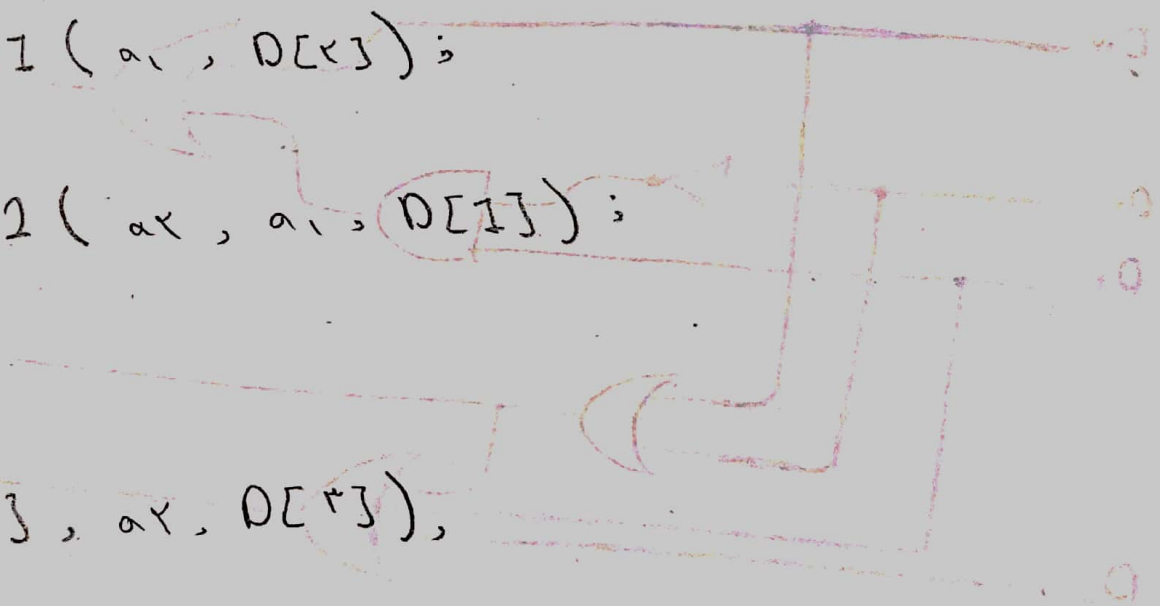 1 ( a۱ , D[۲] ) ;
2 ( a۲ , a۱ , D[1] ) ;
] , a۲ , D[۳] ) ,